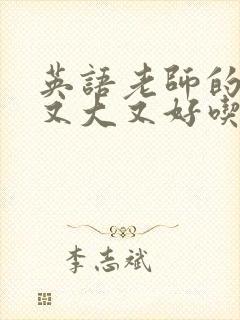 英語老師的
又大又好喫
李志斌